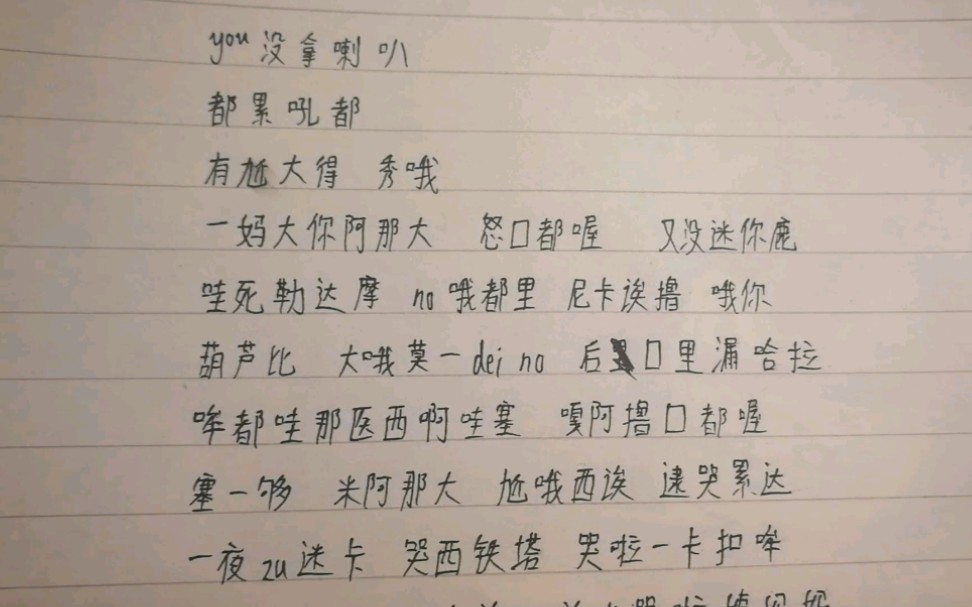 you没拿喇叭
都累吼都
有尬大得 秀哦
一妈大你阿那大 怒口都喔 又没迷你鹿
哇死勒达摩 no哦都里 尼卡诶撸 哦你
葫芦比 大哦莫一dei no 后口里漏哈拉
哞都哇那医西啊哇塞 嘎阿撸口都喔
塞一够 米阿那大 尬哦西诶 逮哭累达
一夜zu迷卡 哭西铁塔 哭啦一卡扣哞